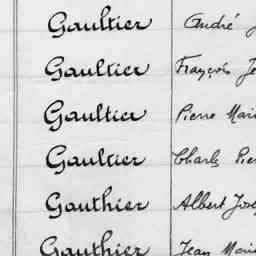 Gaultier André J
Gaultier François Je
Gaultier Pierre Mari
Gaultier Charles Pier
Gauthier Albert Jose
Gauthier Jean Mari